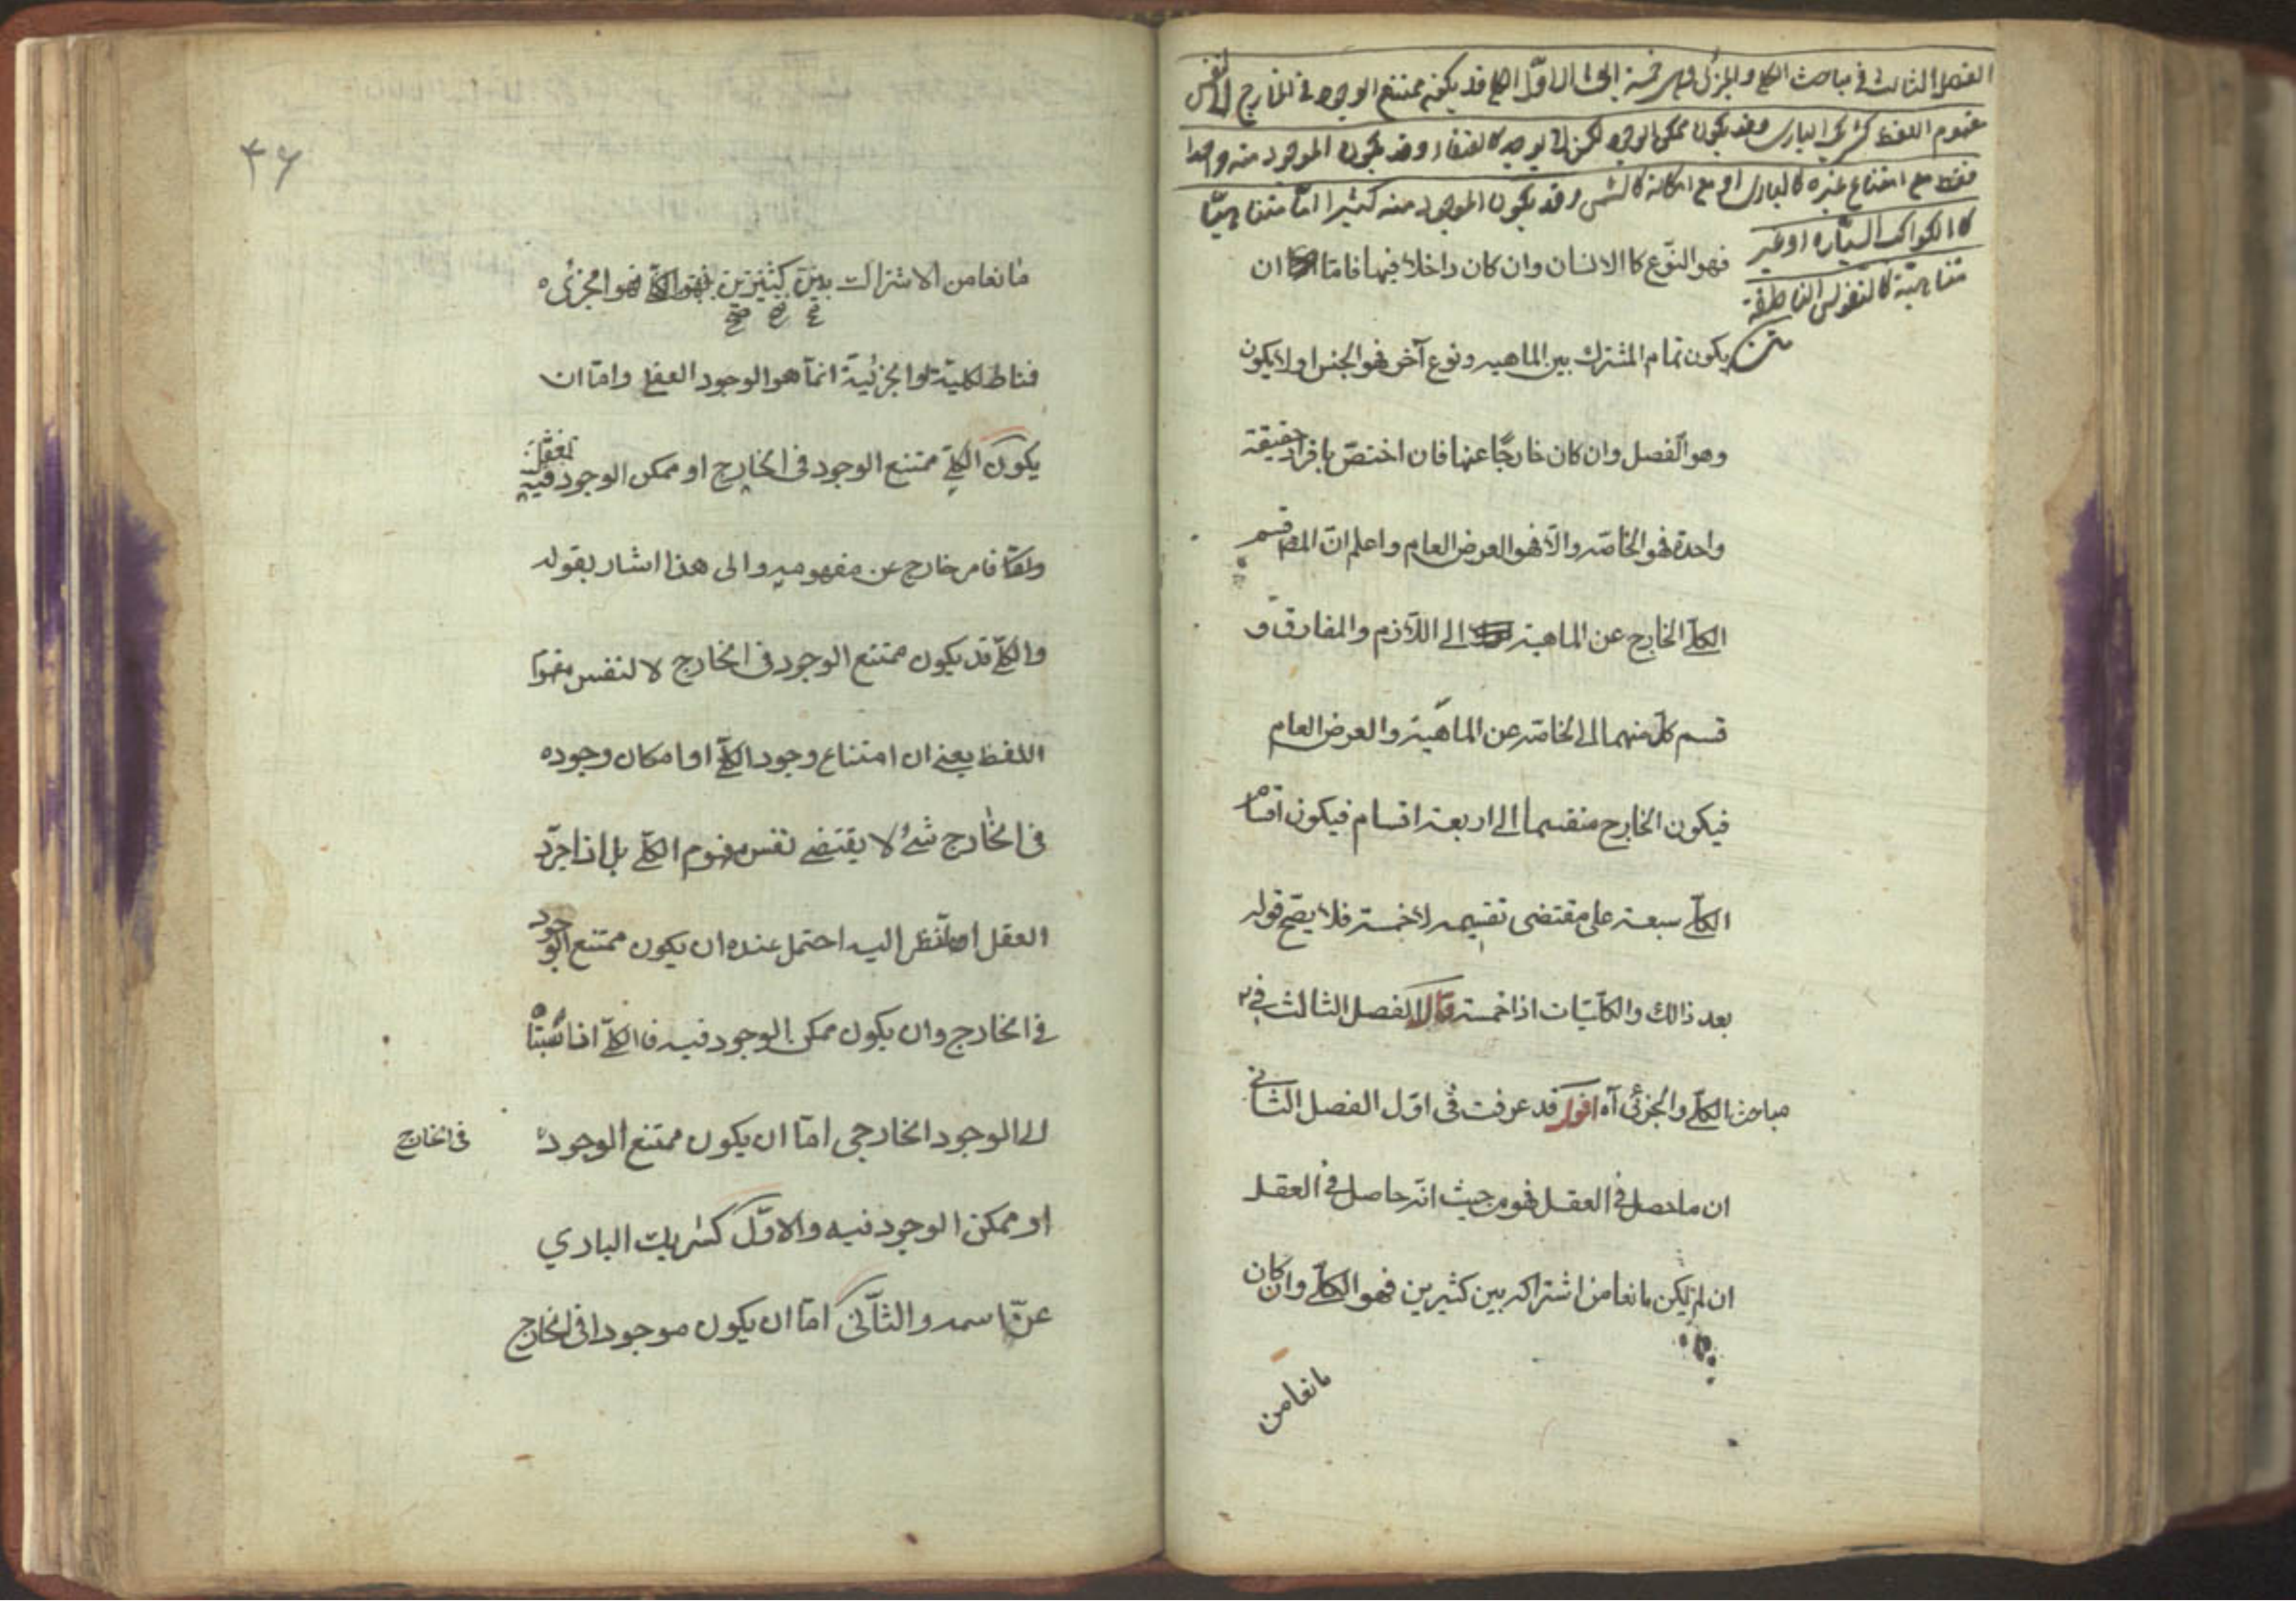 الفصل الثالث في مباحث الكلي والجزئي وهي خمسة الاول الكلي قد يكون ممتنع الوجود في الخارج لا لنفس
مفهوم اللفظ كشريك الباري وقد يكون ممكن الوجود لكن لا يوجد كالعنقاء وقد يكون الموجود منه واحدا
فقط مع امتناع غيره كالباري او مع امكانه كالشمس وقد يكون الموجود منه كثيرا اما متناهيا
كالكواكب السيارة او غير
متناهية كالنفوس الناطقة
متن
فهو النّوع كالانسان وان كان داخلا فيها فامّا ان
يكون تمام المشترك بين الماهيه ونوع آخر فهو الجنس او لا يكون
وهو الفصل وان كان خارجًا عنها فان اختصّ بافراد حقيقة
واحدة فهو الخاصّه والّا فهو العرض العام واعلم انّ المص قسم
الكلّي الخارج عن الماهية الى اللّازم والمفارق و
قسم كلّ منهما الى الخاصّه عن الماهيّة والعرض العام
فيكون الخارج منقسما الى اربعة اقسام فيكون اقسام
الكلّي سبعة على مقتضى تقسيمه لا خمسة فلا يصّح قوله
بعد ذالك والكلّيّات اذا خمسة قال الفصل الثالث في
مباحث الكلّي والجزئي آه اقول قد عرفت في اوّل الفصل الثاني
ان ما حصل في العقل فهو من حيث انّه حاصل في العقل
ان لم يكن مانعا من اشتراكه بين كثيرين فهو الكلّي وان كان
مانعا من
٣٦
مانعا من الاشتراك بين كثيرين فهو الجزئي
فمناط الكلية والجزئيّة انمّا هو الوجود العقلي وامّا ان
يكون الكلّي ممتنع الوجود في الخارج او ممكن الوجود فيه
فامر خارج عن مفهومه والى هذا اشار بقوله
والكلّي قد يكون ممتنع الوجود في الخارج لا لنفس مفهوم
اللفظ يعني ان امتناع وجود الكلّي او امكان وجوده
في الخارج شئ لا يقتضي نفس مفهوم الكلّي بل اذا جرّد
العقل النظر اليه احتمل عنده ان يكون ممتنع الوجود
في الخارج وان يكون ممكن الوجود فيه فالكلّي اذا نسبناه
الى الوجود الخارجي امّا ان يكون ممتنع الوجود في الخارج
او ممكن الوجود فيه والاوّل كشريك الباري
عزّ اسمه والثّاني امّا ان يكون موجودا في الخارج